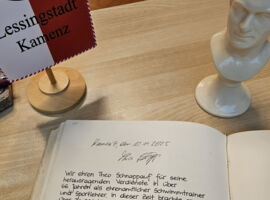 Lessingstadt
Kamenz
Kamenz, den
Wir ehren Theo Schnappauf für seine
herausragenden Verdienste in über
66 Jahren als ehrenamtlicher Schwimmtrainer
und Sportlehrer. In dieser Zeit brachte er